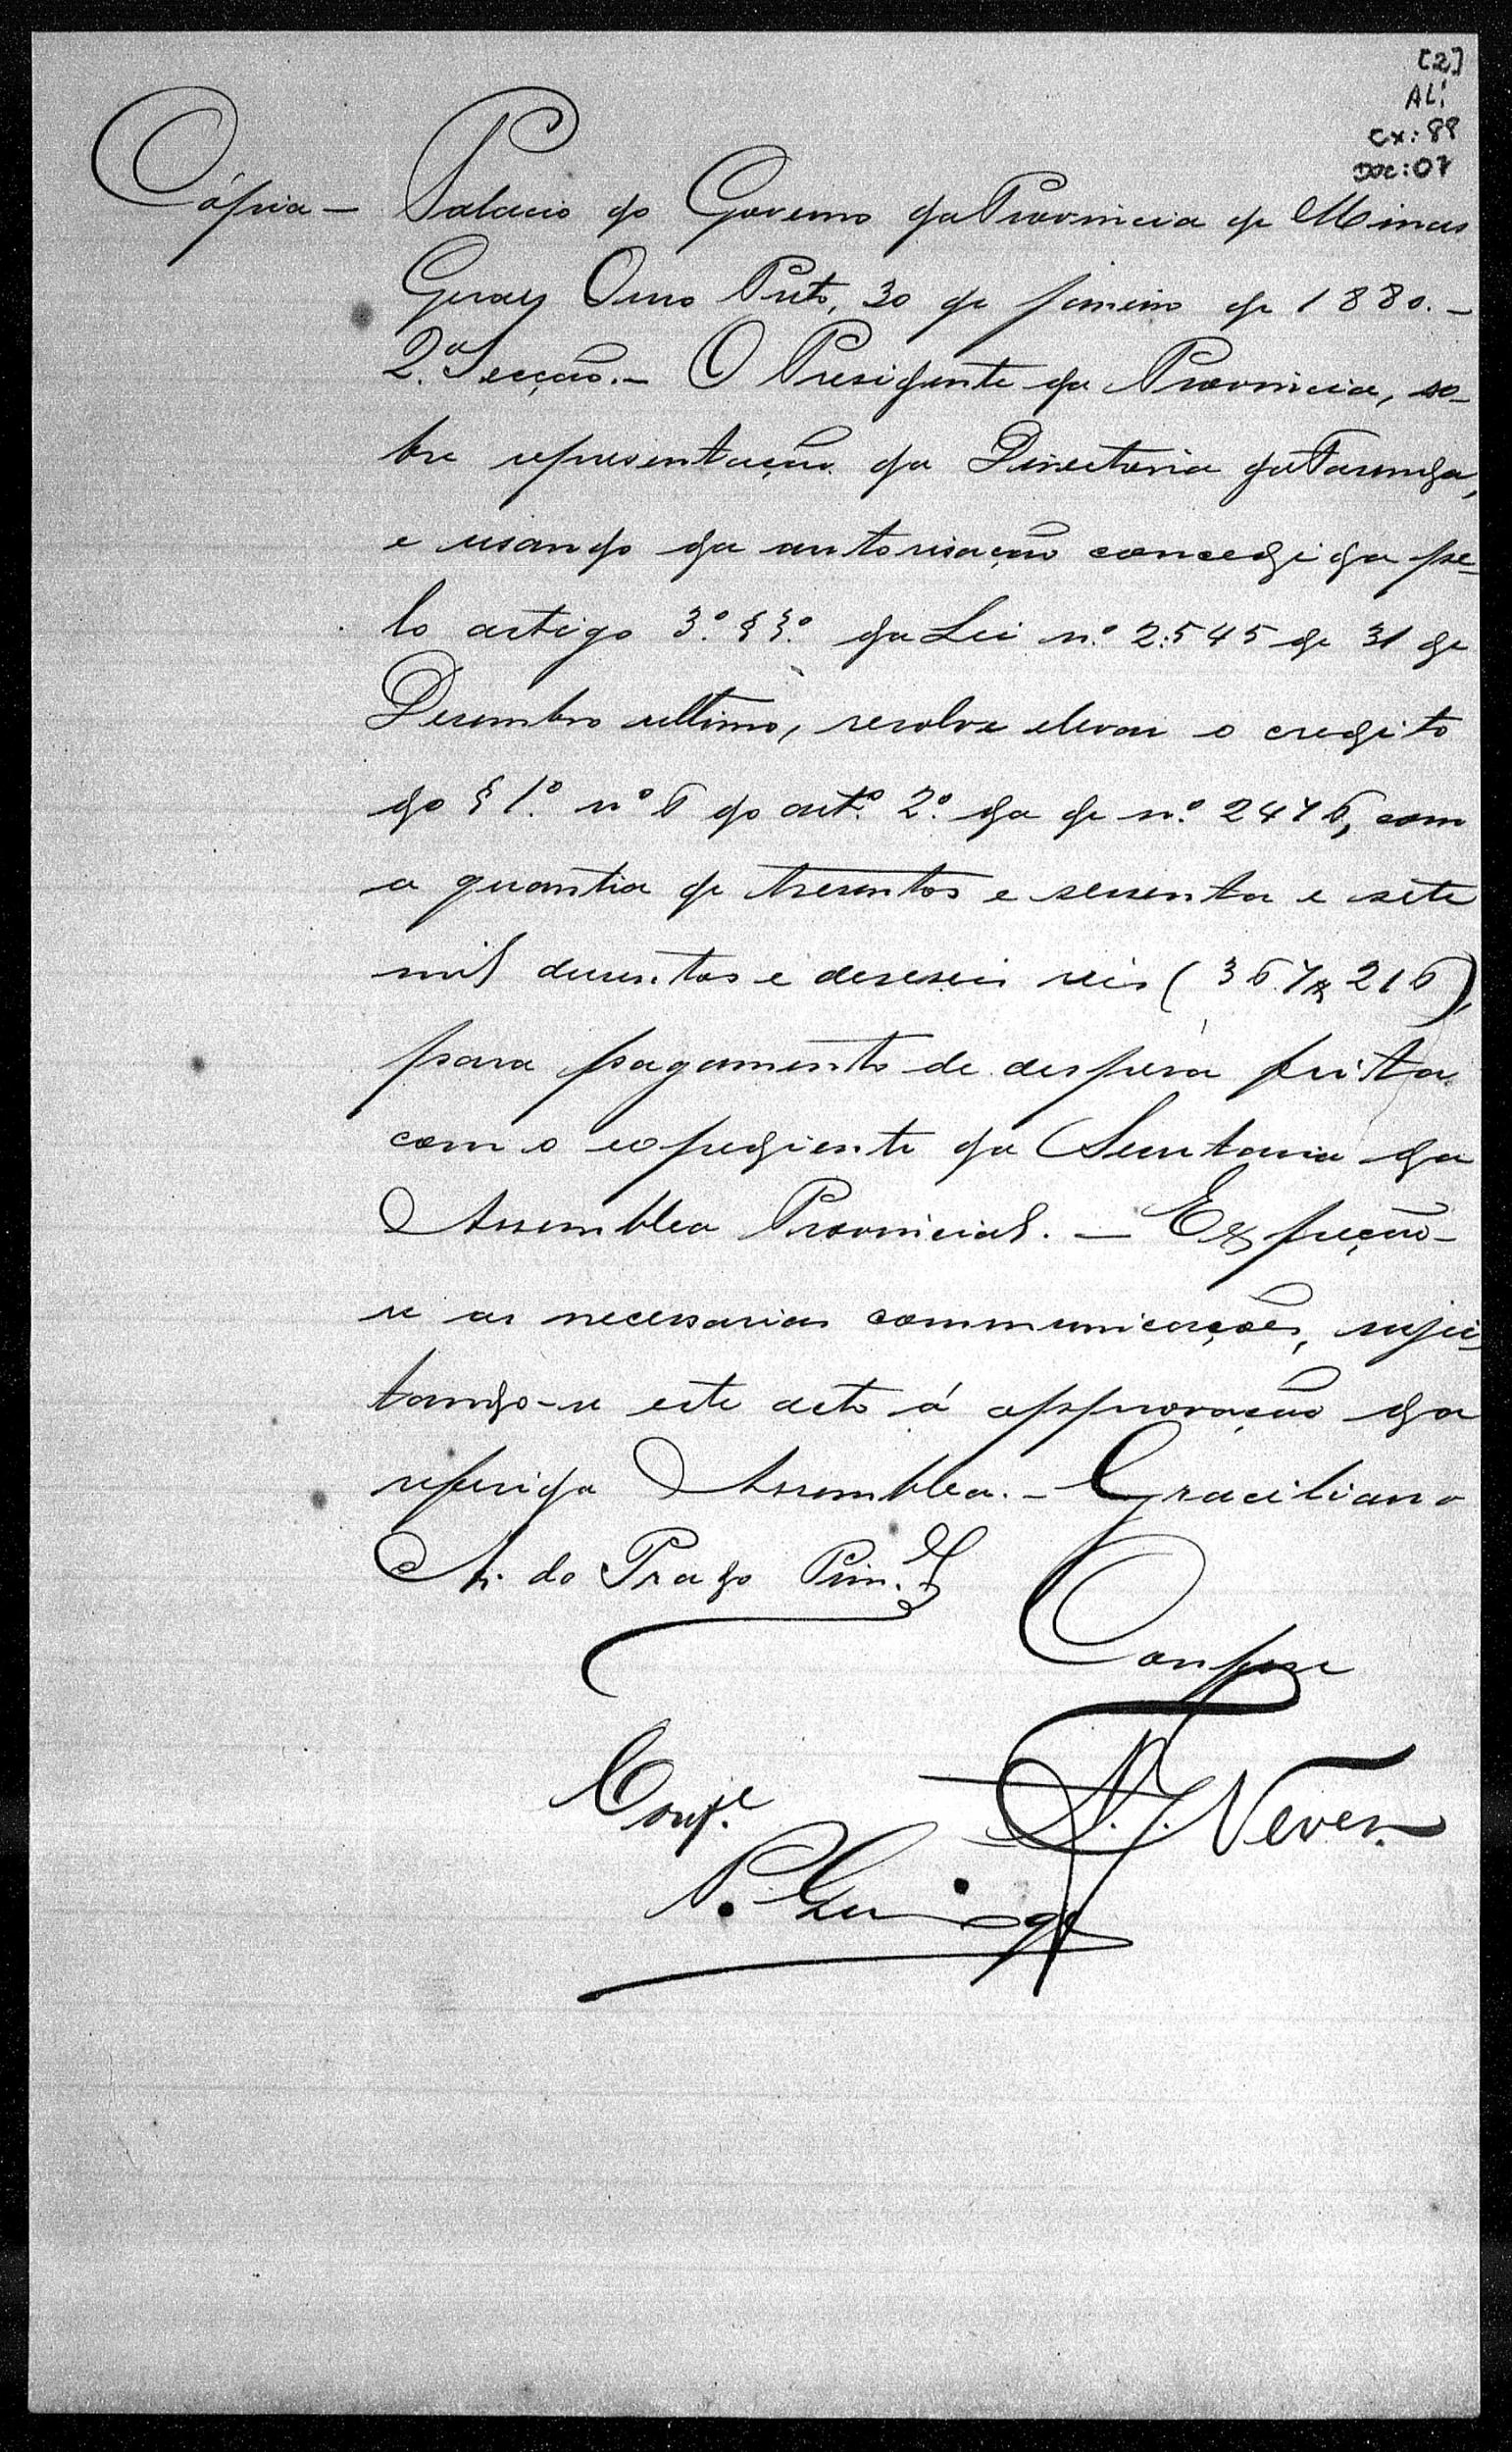 [2]
AL1
CX: 88
DOC: 07
Cópia — Palacio do Governo da Provincia de Minas
Geraes Ouro Preto, 30 de Janeiro de 1880. —
2.ª Secção. — O Presidente da Provincia, so-
bre representação da Directoria da Fasenda,
e usando da autorisação concedida pe-
lo artigo 3.º § 3.º da Lei n.º 2:545 de 31 de
Desembro ultimo, resolve elevar o credito
do § 1.º n.º 6 do art.º 2.º da de n.º 2476, com
a quantia de tresentos e sessenta e sete
mil dusentos e deseseis reis (367$216),
para pagamento de despesa feita
com o expediente da Secretaria da
Assemblea Provincial. — Expeção-
se as necessarias communicações, sujei-
tando-se este acto á approvação da
referida Assemblea. — Graciliano
A. do Prado Pim.el
Confere
Conf.e
Neves
P.